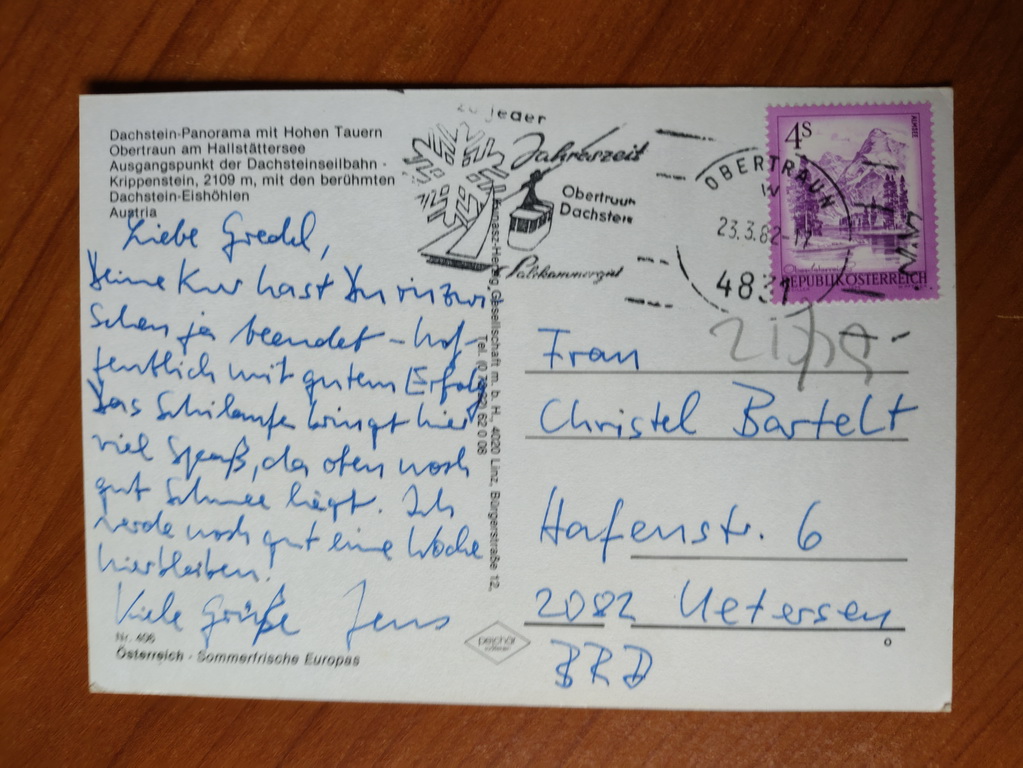 Dachstein-Panorama mit Hohen Tauern
Obertraun am Hallstättersee
Ausgangspunkt der Dachsteinseilbahn -
Krippenstein, 2109 m, mit den berühmten
Dachstein-Eishöhlen
Austria
Liebe Gredel,
Deine Kur hast Du inzwi-
schen ja beendet - hof-
fentlich mit gutem Erfolg
Das Schilaufen bringt hier
viel Spaß, da oben noch
gut Schnee liegt. Ich
werde noch gut eine Woche
hierbleiben!
Viele Grüße Jens
Nr. 406
Österreich - Sommerfrische Europas
Gesellschaft m. b. H., 4020 Linz, Bürgerstraße 12,
Tel. 62 0 08
zu jeder
Jahreszeit
Obertraun
Dachstein
Salzkammergut
OBERTRAUN
23.3.82-17
4831
4S
ALMSEE
Oberösterreich
REPUBLIK ÖSTERREICH
Frau
Christel Bartelt
Hafenstr. 6
2082 Uetersen
BRD